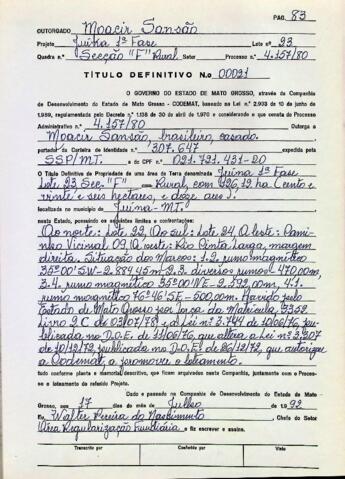 PAG. 83
OUTORGADO Moacir Sansão
Projeto Juína 1ª Fase Lote nº 23
Quadra n.º Secção "F" Rural Setor Processo n.º 4.157/80
TÍTULO DEFINITIVO N.o 00091
O GOVERNO DO ESTADO DE MATO GROSSO, através da Companhia
de Desenvolvimento do Estado de Mato Grosso - CODEMAT, baseado na Lei n.º 2.933 de 10 de junho de
1.939, regulamentada pelo Decreto n.º 1.138 de 30 de abril de 1970 e considerando o que consta do Processo
Administrativo n.º 4.157/80 Outorga a
Moacir Sansão, brasileiro, casado.
portador da Carteira de Identidade n.º 307.647 expedida pela
SSP/MT. e do CPF n.º 021.721.431-20
O Título Definitivo de Propriedade de uma área de Terra denominada Juína 1ª Fase
Lote 23 Sec. "F" Rural, com 126,12 ha (Cento e
vinte e seis hectares, e doze ares).
localizada no município de Juína-MT.
neste Estado, possuindo os seguintes limites e confrontações:
Ao norte: Lote 22, Ao sul: Lote 24, A leste: Cami-
nho Vicinal 09, A oeste: Rio Pinta Larga, margem
direita. Situação dos Marcos: 1.2. rumo magnético
35º00'SW-2.889,45m-2.3. diversos rumos 470,00m,
3.4. rumo magnético 35º00'NE-2.592,00m, 4.1.
rumo magnético 76º46'SE-500,00m. Havido pelo
Estado de Mato Grosso por força da Matrícula, 3352
Livro 2 C de 03/07/78 e a Lei nº 3.744 de 10/06/76, pu-
blicada no D.O.E. de 11/06/76, que altera a Lei nº 3.307
de 10/12/72, publicada no D.O.E. de 26/12/72, que autoriza
a Codemat, a promover o loteamento.
tudo conforme planta e memorial descritivo, que ficam arquivados nesta Companhia, juntamente com o Proces-
so e loteamento do referido Projeto.
Dado e passado na Companhia de Desenvolvimento do Estado de Mato-
Grosso, aos 17 dias do mês de Julho de 1.992
Eu, Walter Pereira do Nascimento Chefe do Setor
Área Regularização Fundiária o fiz escrever e assino.
Transcrito por
Conferido por
Visto